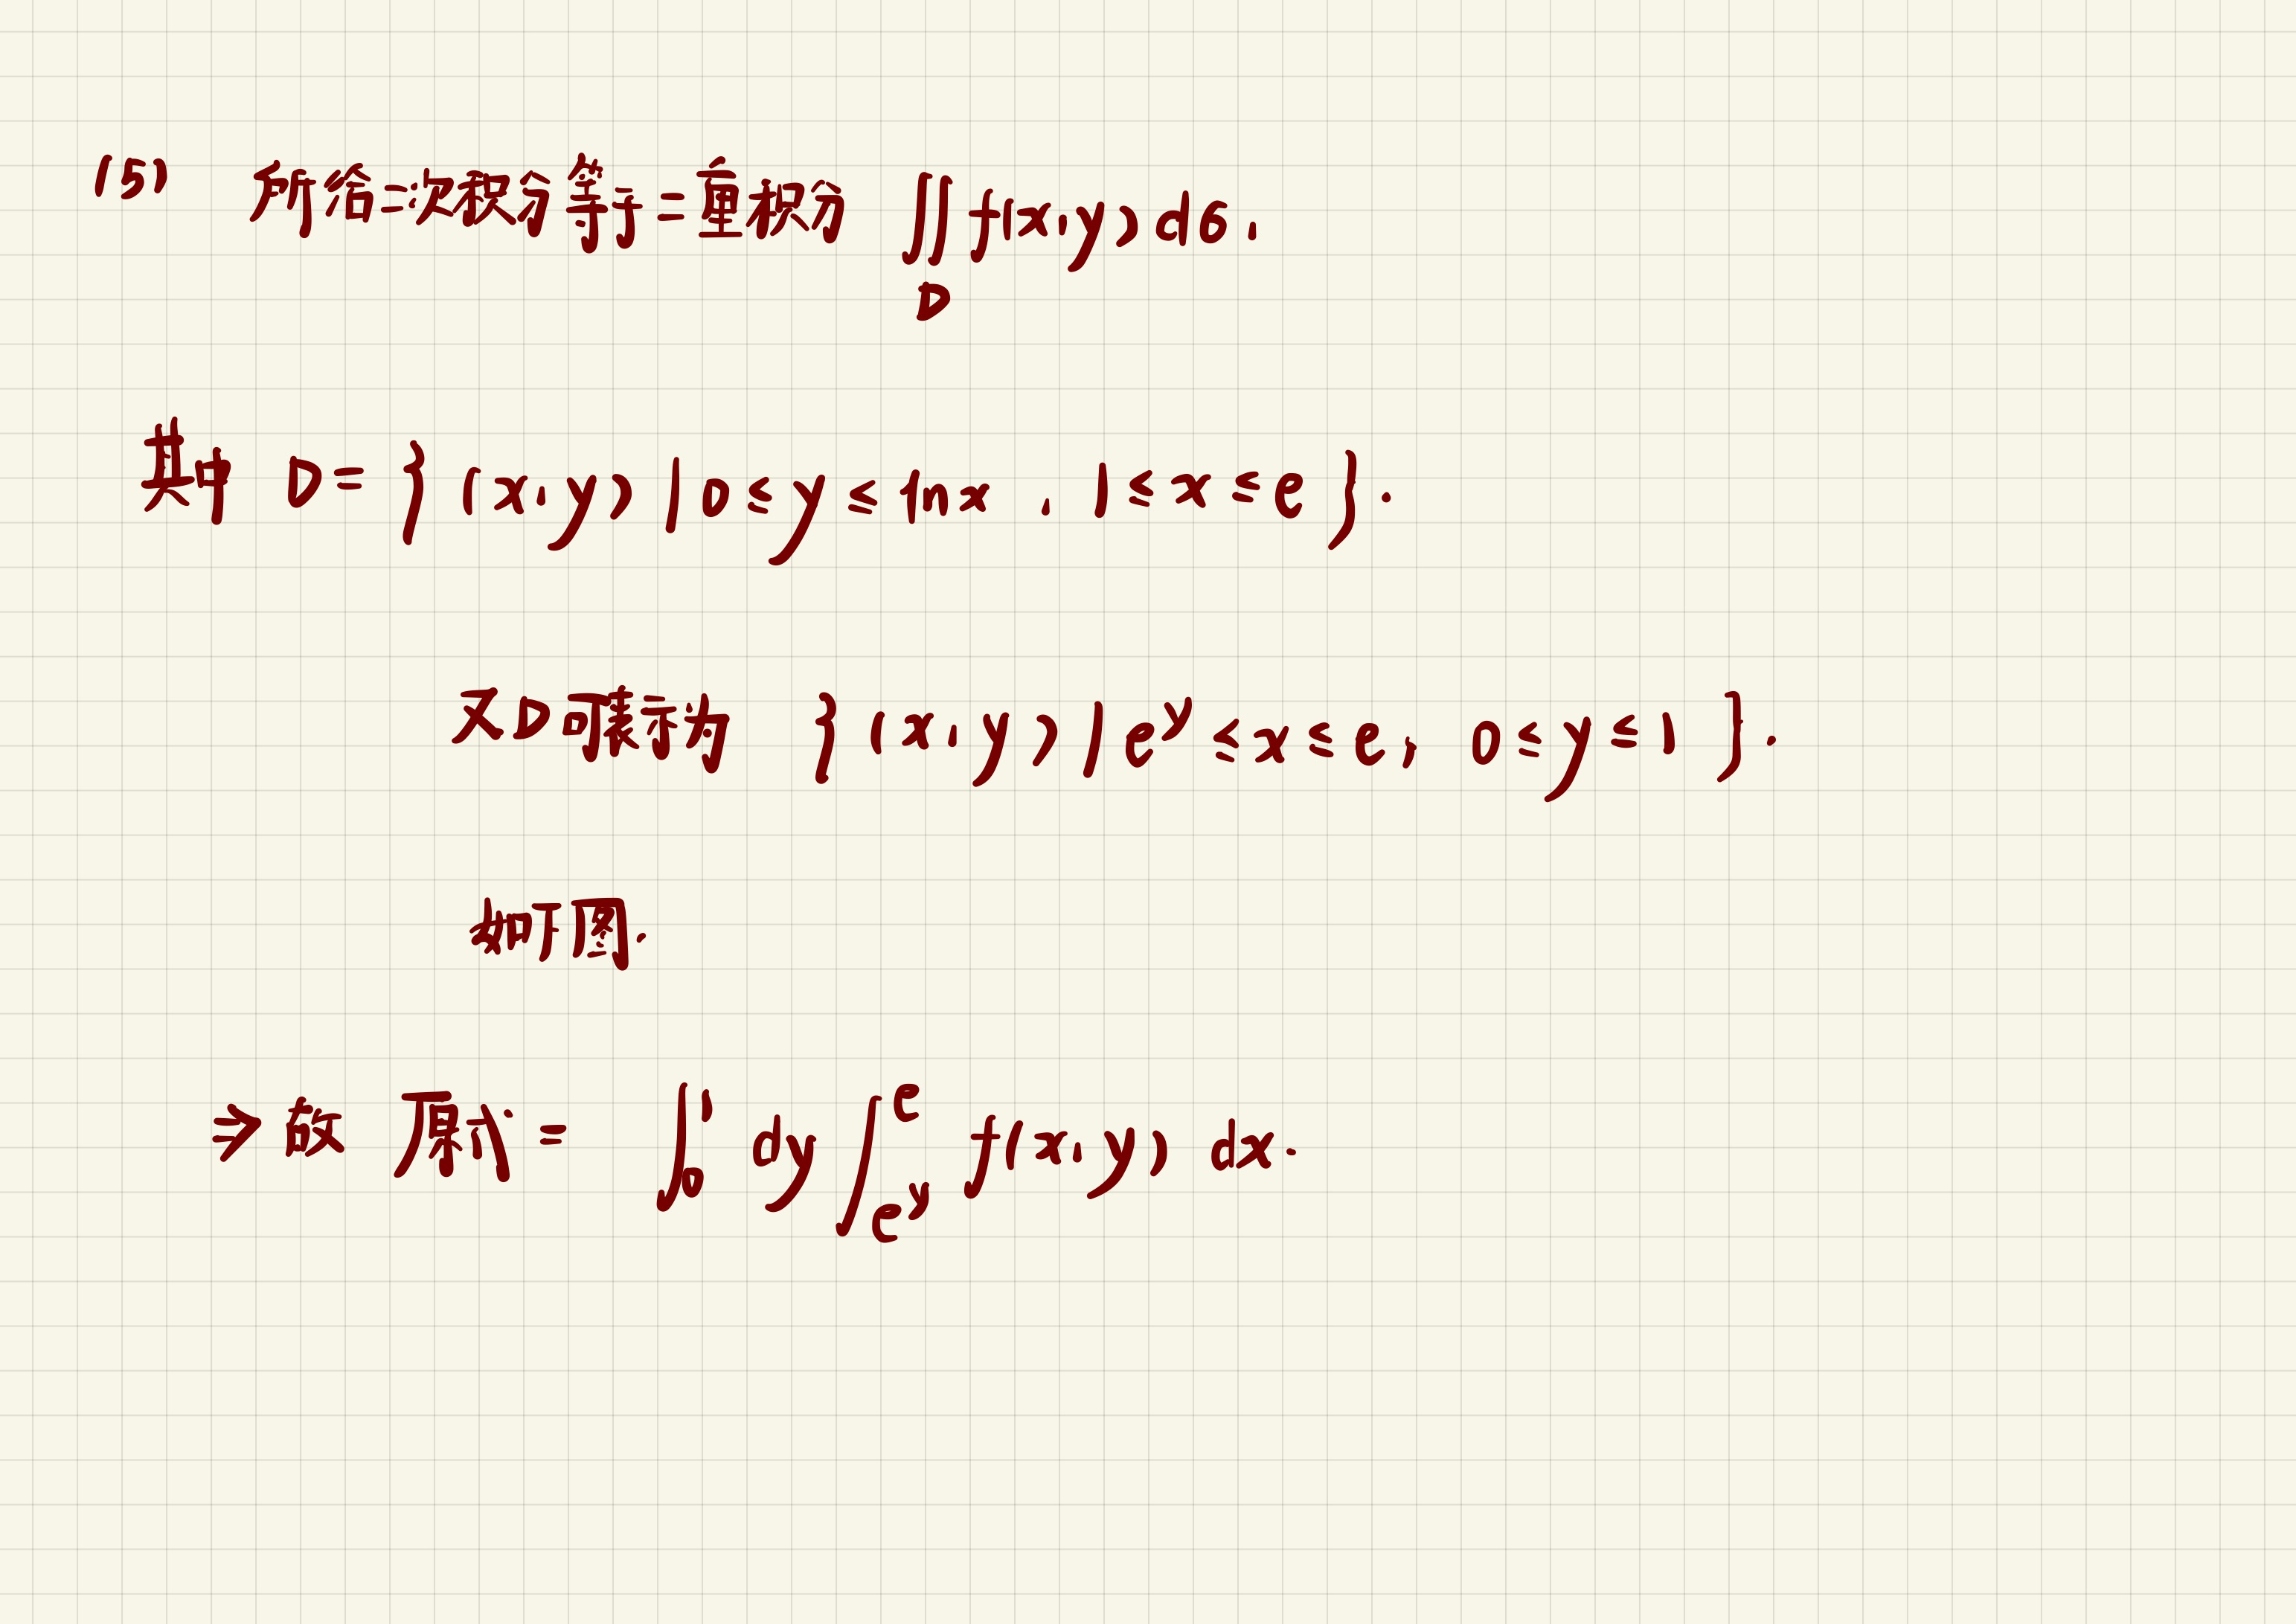 (5) 所给二次积分等于二重积分 ∬_D f(x,y)dσ,
其中 D={(x,y)|0≤y≤lnx, 1≤x≤e}.
又D可表示为 {(x,y)|e^y≤x≤e, 0≤y≤1}.
如下图.
⇒故 原式= ∫_0^1 dy ∫_{e^y}^e f(x,y) dx.